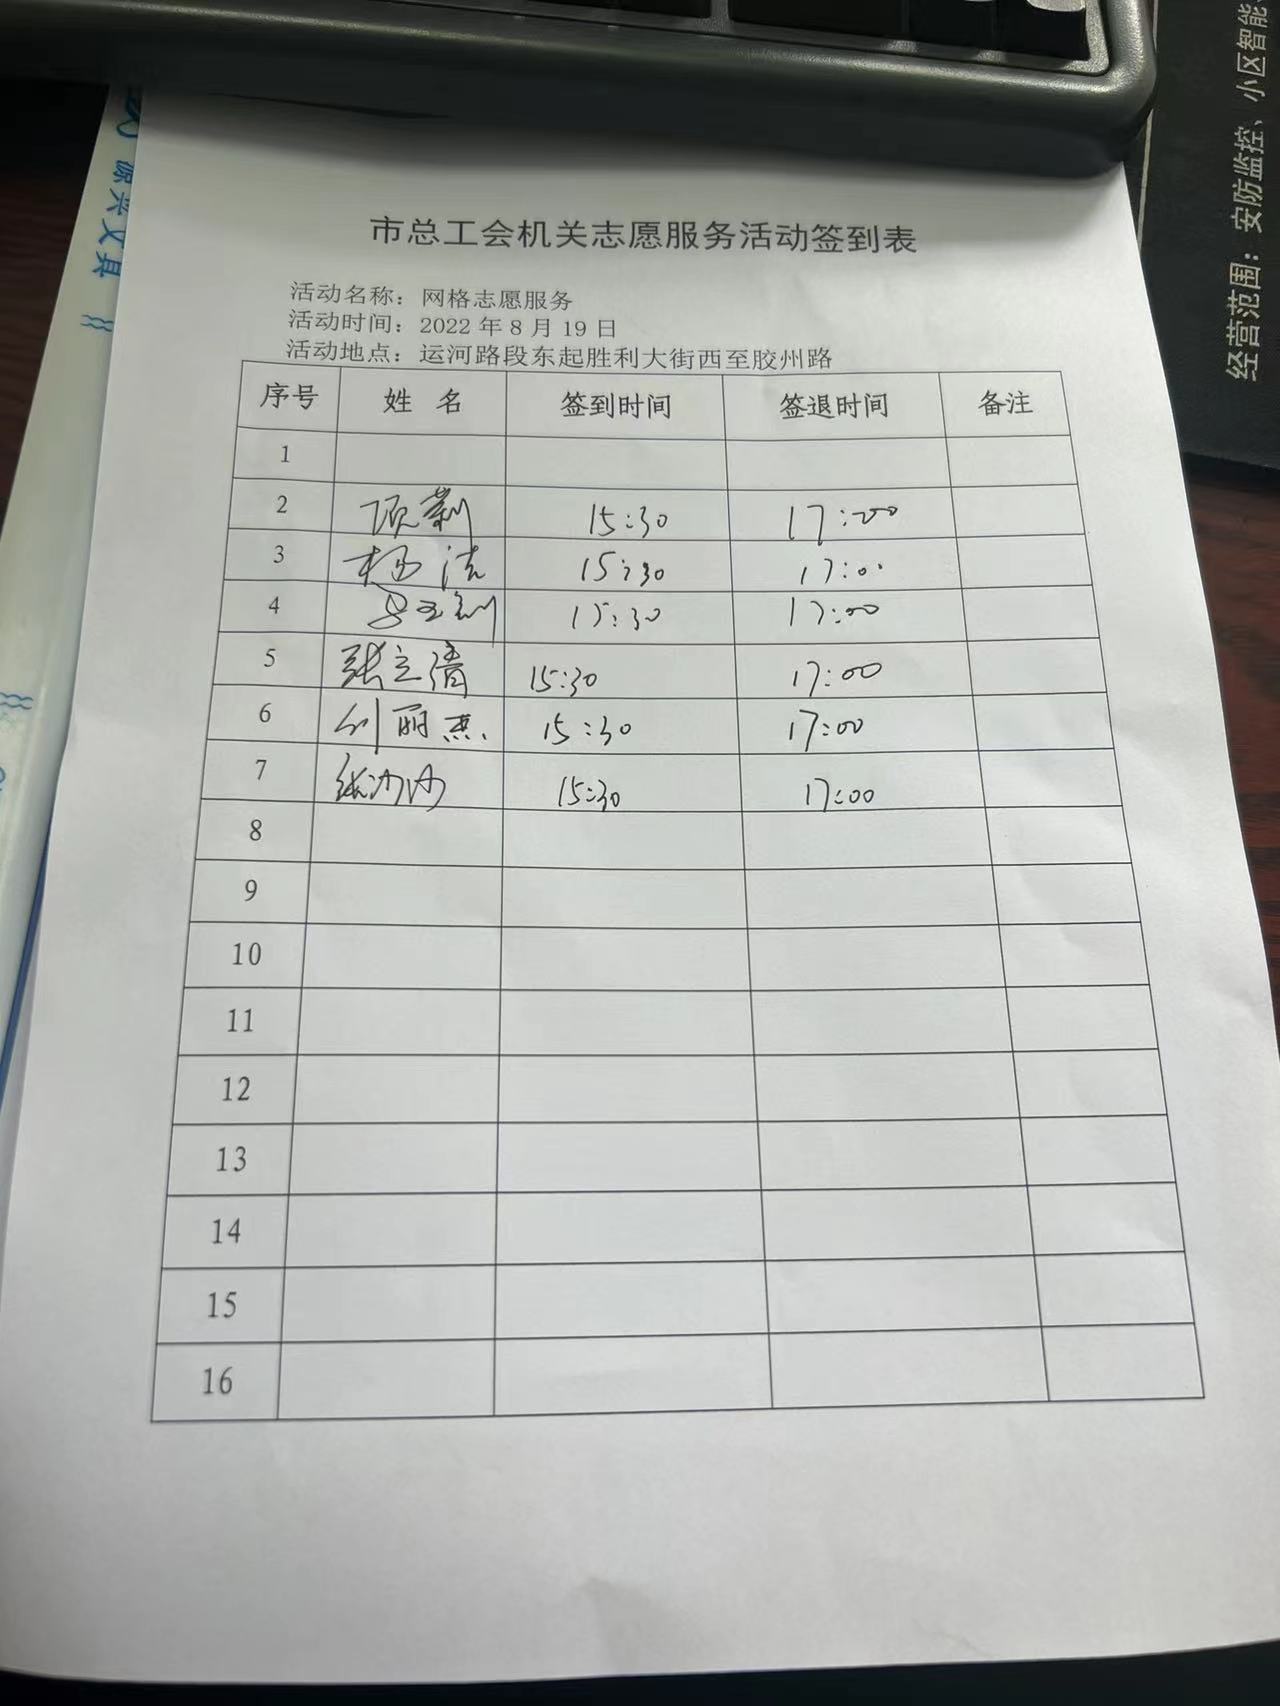 源兴文具
经营范围：安防监控、小区智能
市总工会机关志愿服务活动签到表
活动名称：网格志愿服务
活动时间：2022 年 8 月 19 日
活动地点：运河路段东起胜利大街西至胶州路
序号 姓 名 签到时间 签退时间 备注
1
2 15:30 17:00
3 杨洁 15:30 17:00
4 15:30 17:00
5 张立清 15:30 17:00
6 刘丽杰 15:30 17:00
7 张沙沙 15:30 17:00
8
9
10
11
12
13
14
15
16